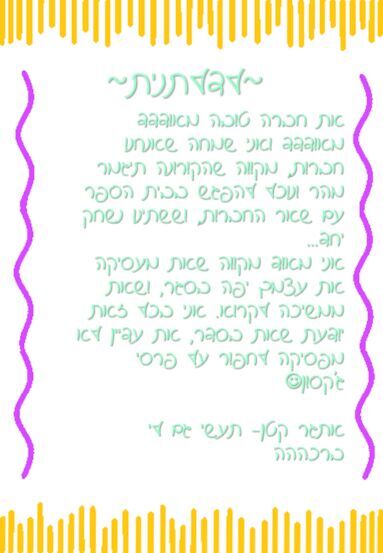 ~לבלתנית~
את חברה טובה מאוודדד
מאוודדד ואני שמחה שאנחנו
חברות, מקווה שהקורונה תיגמר
מהר ונוכל להפגש בבית הספר
עם שאר החברות, וששתינו נשחק
יחד...
אני מאוד מקווה שאת מעסיקה
את עצמך יפה בסגר, ושאת
ממשיכה לקרוא. אני בכל זאת
יודעת שאת בסדר, את עדיין לא
מפסיקה לחפור על פרסי
ג'קסון☺
אתגר קטן- תעשי גם לי
ברכהההה